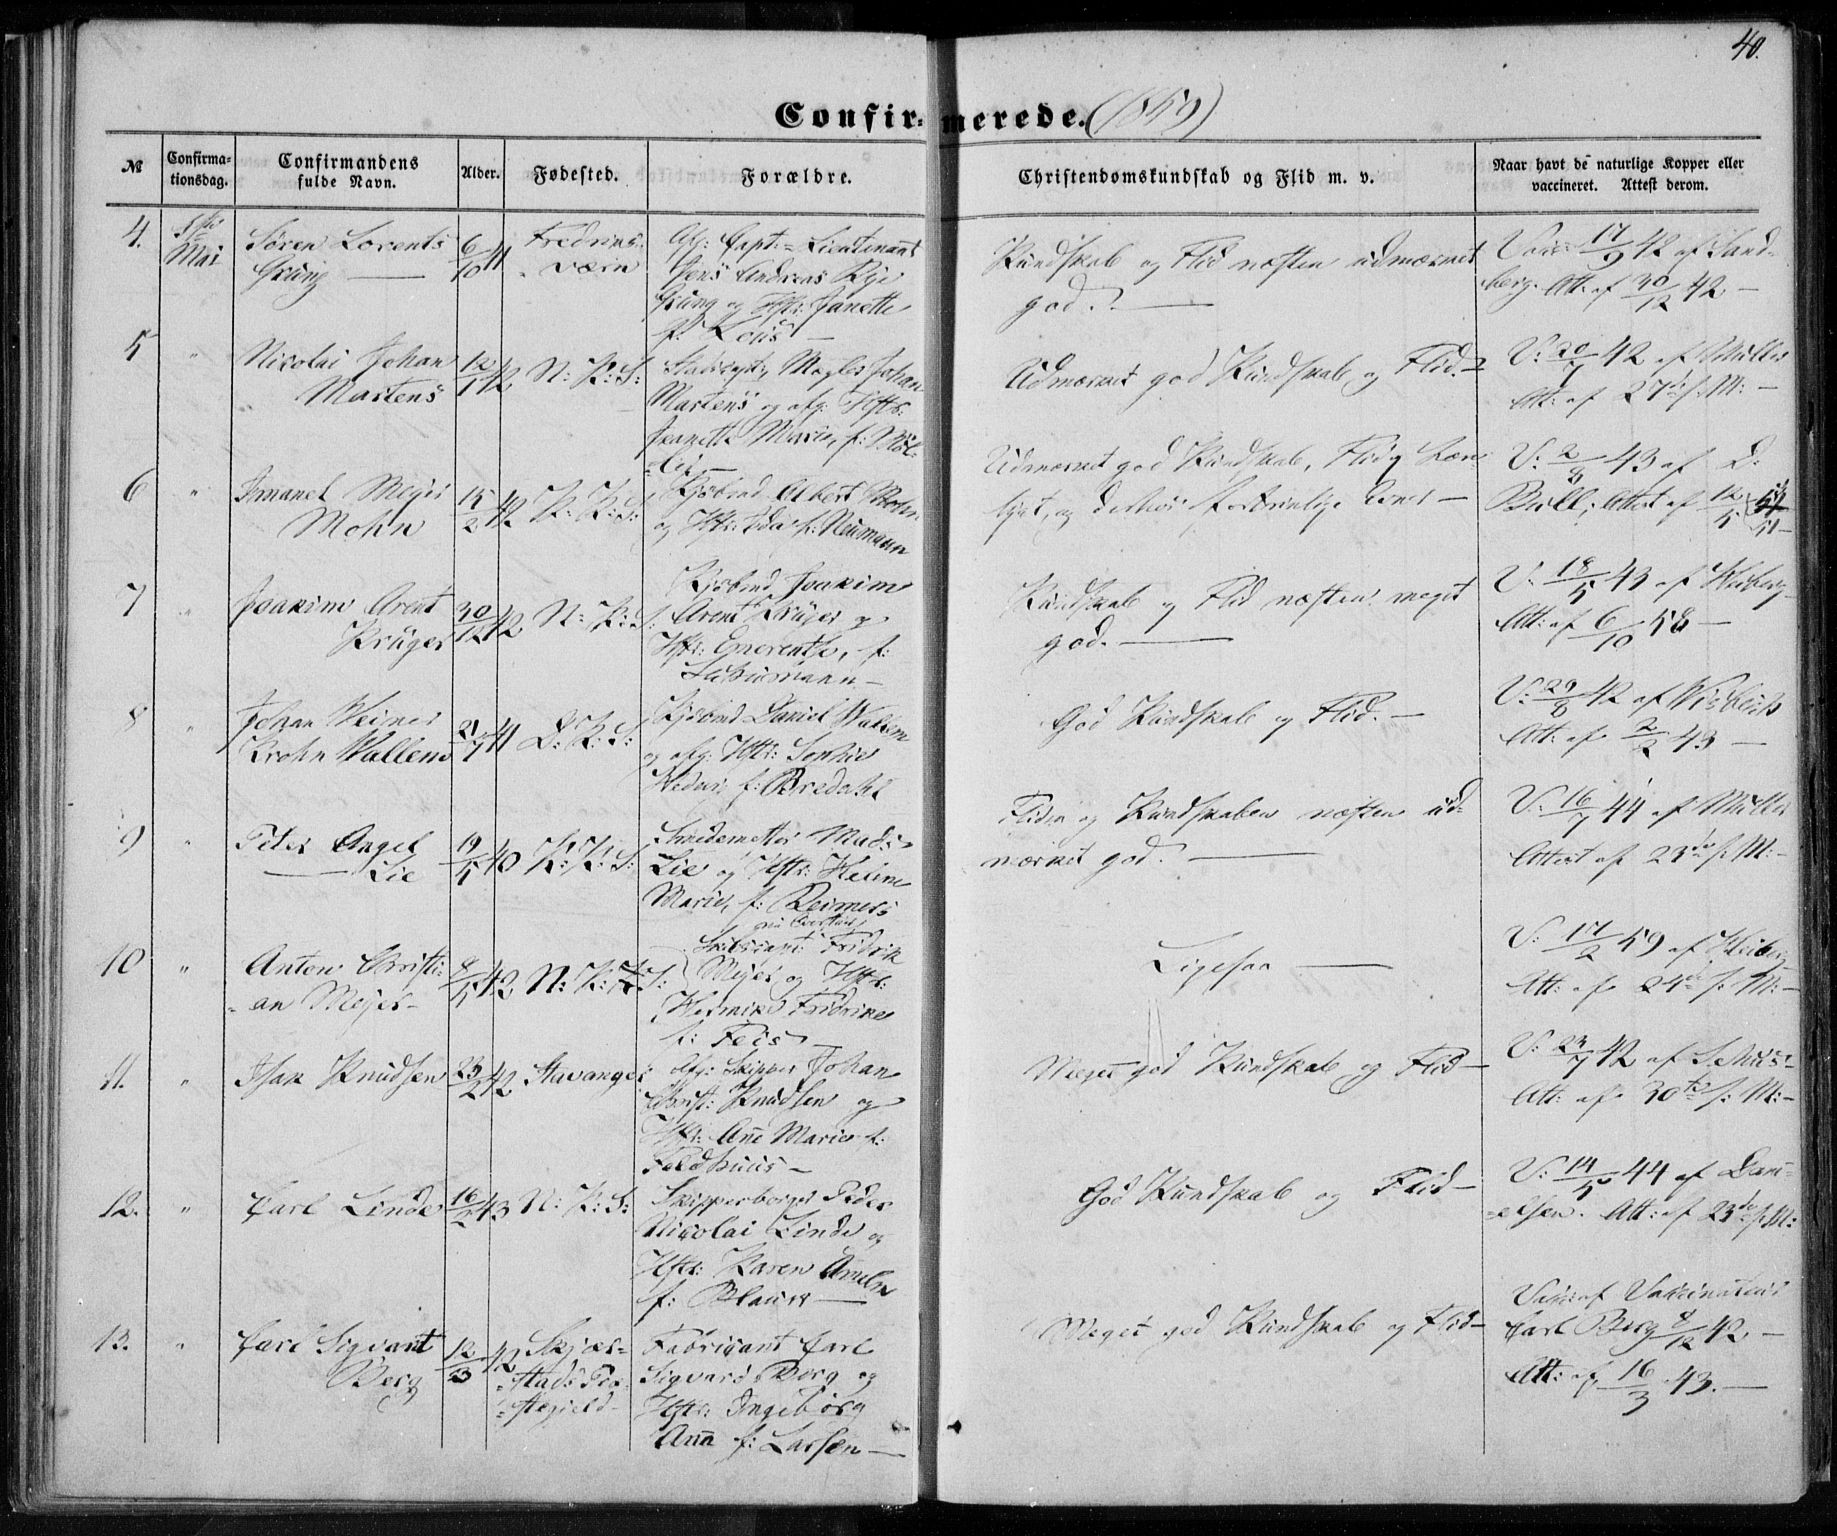 40.
Confirmerede. (1859)
№
Confirma-
tionsdag.
Confirmandens
fulde Navn.
Alder.
Fødested.
Forældre.
Christendomskundskab og Flid m. v.
Naar havt de naturlige Kopper eller
vaccineret. Attest derom.
4.
5te
Mai
Søren Lorents
Grung
6/10 41
Fredrics-
værn
Afg: Capt: Lieutenant
Jens Andreas Rye
Grung og Hstr: Janette
f:
Kundskab og Flid næsten udmærket
god.
Vacc: 17/9 42 af Sand-
berg. Att: af 30/12 42 —
5
"
Nicolai Johan
Martens
12/1 42
N: K: S:
Mægler Johan
Martens og afg: Hstr:
Jeanette Marie, f: Möl-
ler
Udmærket god Kundskab og Flid.
V: 20/7 42 af Müller
Att: af 27de s: M: —
6
"
Imanel Meyer
Mohn
15/2 42
K: K: S:
Kjøbmd Albert Mohn
og Hstr: Ida f: Neumann
Udmærket god Kundskab, Flid og Sæd-
V: 2/8 43 af D:
Bull; Attest af 12/5 51
7
"
Joakim Arent
Krüger
30/12 42
N: K: S:
Kjøbmd Joakim
Arent Krüger og
Hstr: Emerentse, f:
Schumann —
Kundskab og Flid næsten meget
god.
V: 18/5 43 af Heiberg
Att: af 6/10 58 —
8
"
Johan Weiner
Krohn Wallem
21/7 41
D: K: S:
Kjøbmd Daniel Wallem
og afg: Hstr: Sophie
Hedvig f: Bredahl
God Kundskab og Flid. —
V: 29/8 42 af Wisbech
Att: af 2/2 43 —
9
"
Peter Angel
Lie
19/5 40
K: K: S:
Smedemester Mads
Lie og Hstr: Heline
Marie, f: Reimers
Flid og Kundskaben næsten ud-
mærket god.
V: 16/7 44 af Müller
Attest af 23de s: M: —
10
"
Anton Christi-
an Meyer —
8/5 42
N: K: K: S:
Fridrik
Meyer og Hstr:
Hermike Fridrike
f:
Ligesaa
V: 17/2 59 af Heiberg
Att: af 24de s: M: —
11.
"
Isak Knudsen
23/2 42
Stavanger
Afg: Skipper Johan
Christ: Knudsen og
Hstr: Ane Marie f:
Feldhuus —
Meget god Kundskab og Flid —
V: 23/7 42 af
Att: af 30te s: M: —
12.
"
Carl Linde
16/2 43
N: K: S:
Skipperborger Peder
Nicolai Linde og
Hstr: Karen Ameln
f: Blauw —
God Kundskab og Flid —
V: 14/5 44 af Dani-
elsen. Att: af 23de s: M:
13.
"
Carl Sigvart
Berg
12/3 42
Skjer-
stads Præ-
stegield —
Fabricant Carl
Sigvard Berg og
Hstr: Ingeborg
Anna f: Larsen —
Meget god Kundskab og Flid —
Vacc: af Vaccinateur
Carl Berg 8/12 42 —
Att: af 16/3 43. —